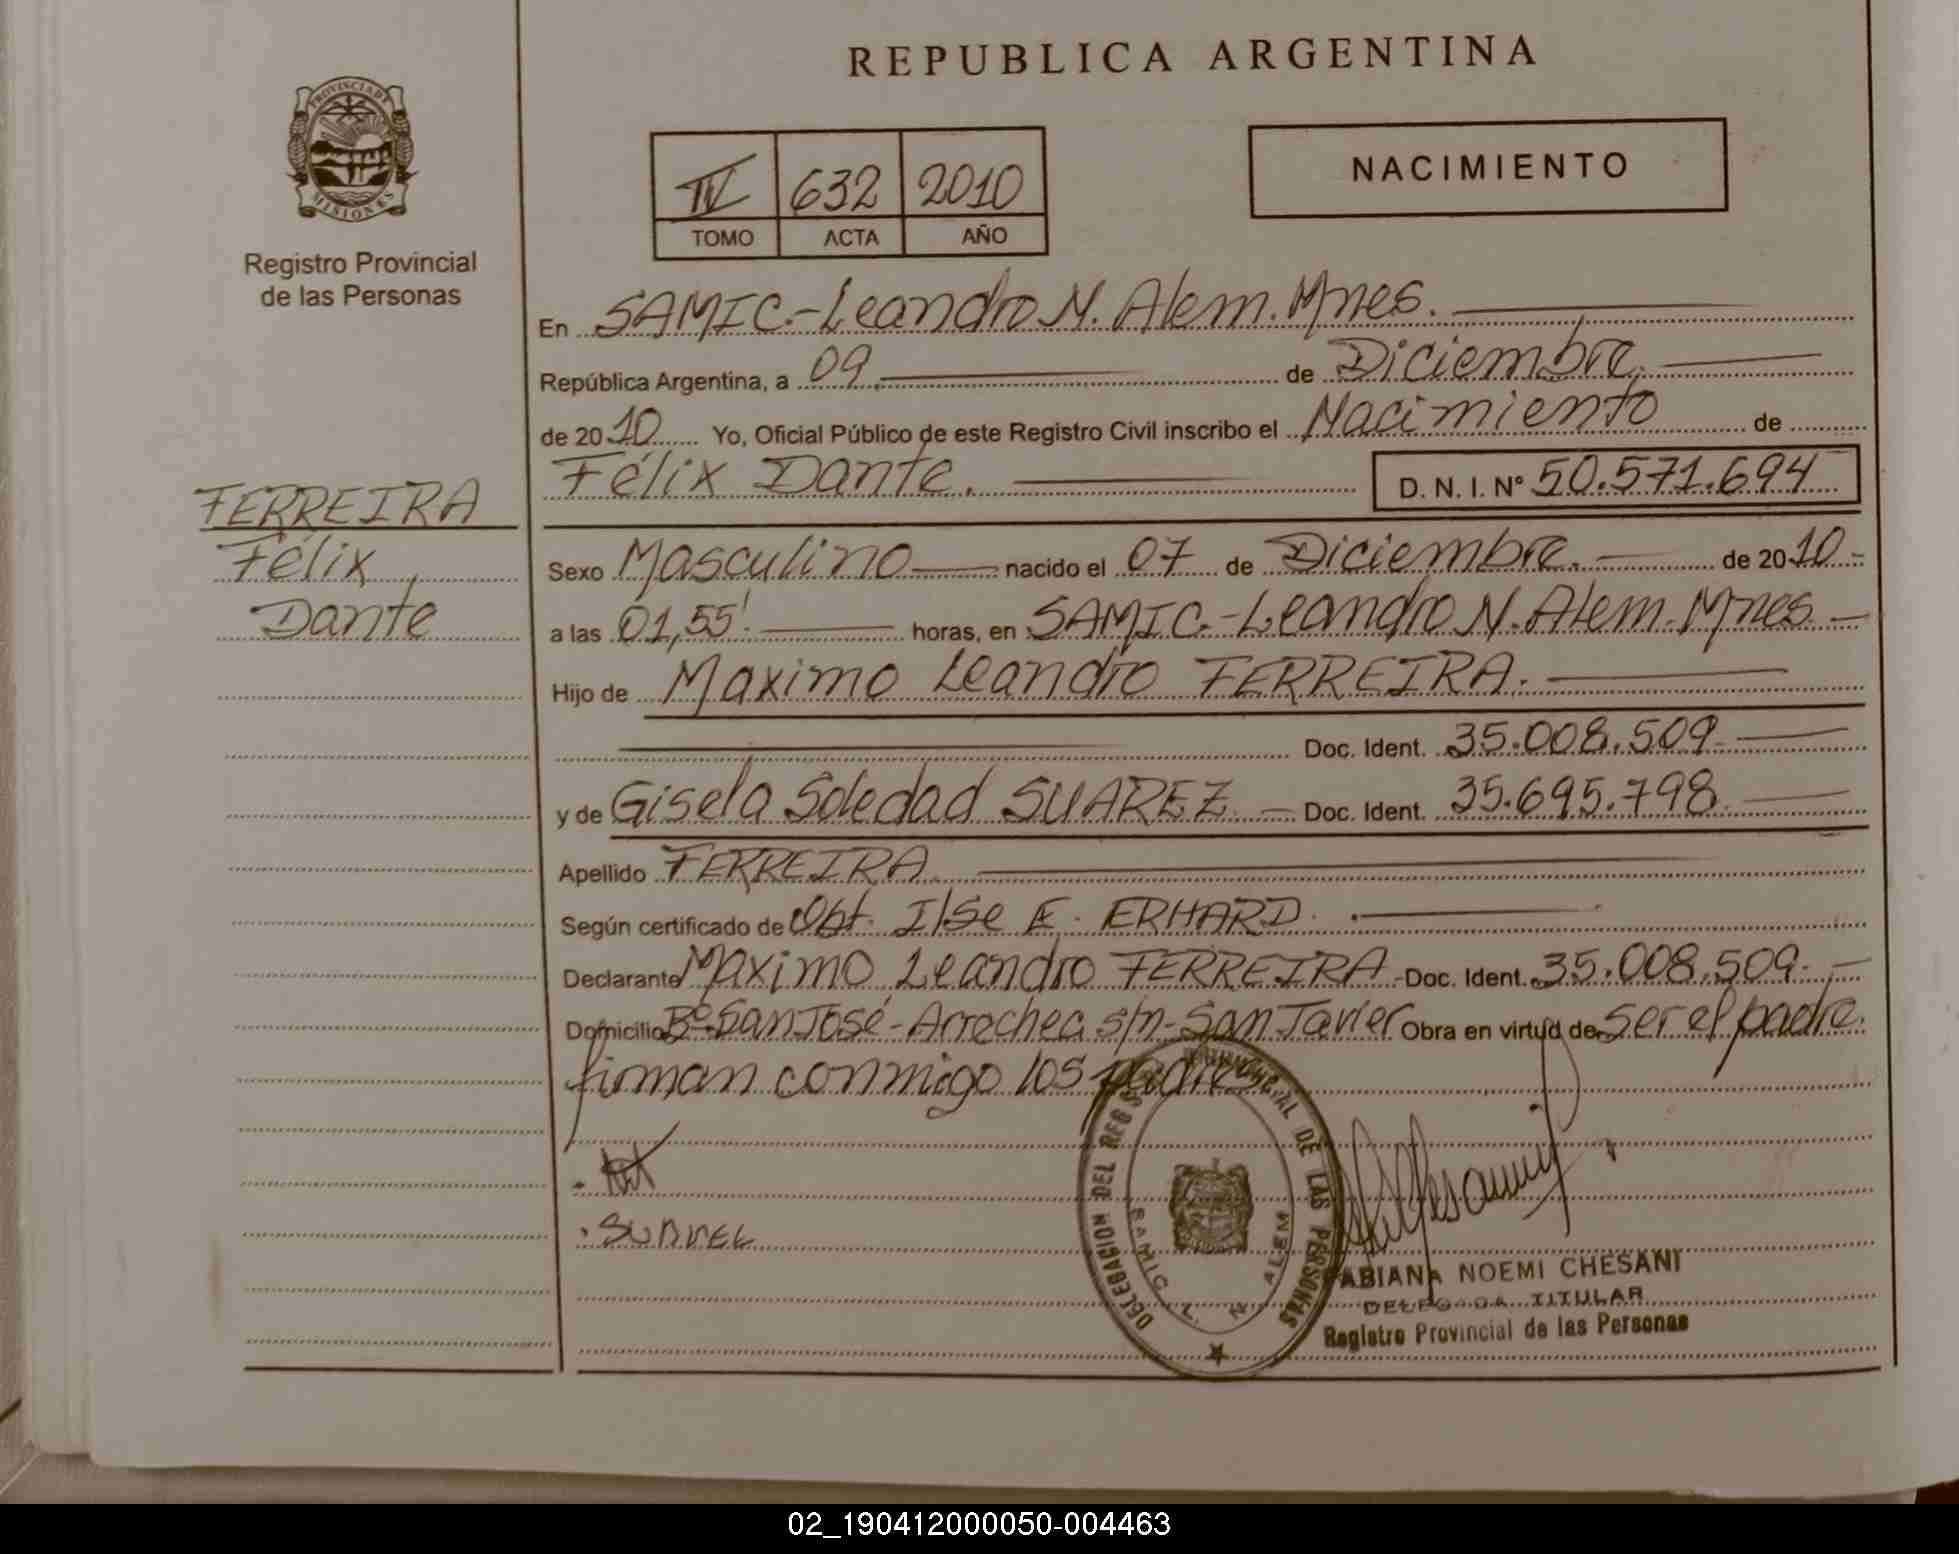 REPUBLICA ARGENTINA
PROVINCIA DE
MISIONES
Registro Provincial
de las Personas
IV 632 2010
TOMO ACTA AÑO
NACIMIENTO
En SAMIC.-Leandro N. Alem. Mnes.
República Argentina, a 09. de Diciembre.
de 2010 Yo, Oficial Público de este Registro Civil inscribo el Nacimiento de
Félix Dante. D. N. I. Nº 50.571.694
FERREIRA
Félix
Dante
Sexo Masculino nacido el 07 de Diciembre. de 2010.-
a las 01,55'. horas, en SAMIC.-Leandro N. Alem. Mnes.
Hijo de Maximo Leandro FERREIRA.
Doc. Ident. 35.008.509.
y de Gisela Soledad SUAREZ. Doc. Ident. 35.695.798.
Apellido FERREIRA.
Según certificado de Obt. Ilse E. ERHARD.
Declarante Maximo Leandro FERREIRA.-Doc. Ident. 35.008.509.
Domicilio Bº San José-Arrechea s/n-San Javier Obra en virtud de ser el padre.
firman conmigo los padres
DELEGACION DEL REG PROVINCIAL DE LAS PERSONAS
SAMIC L. N ALEM
FABIANA NOEMI CHESANI
DELEGADA TITULAR
Registro Provincial de las Personas
02_190412000050-004463